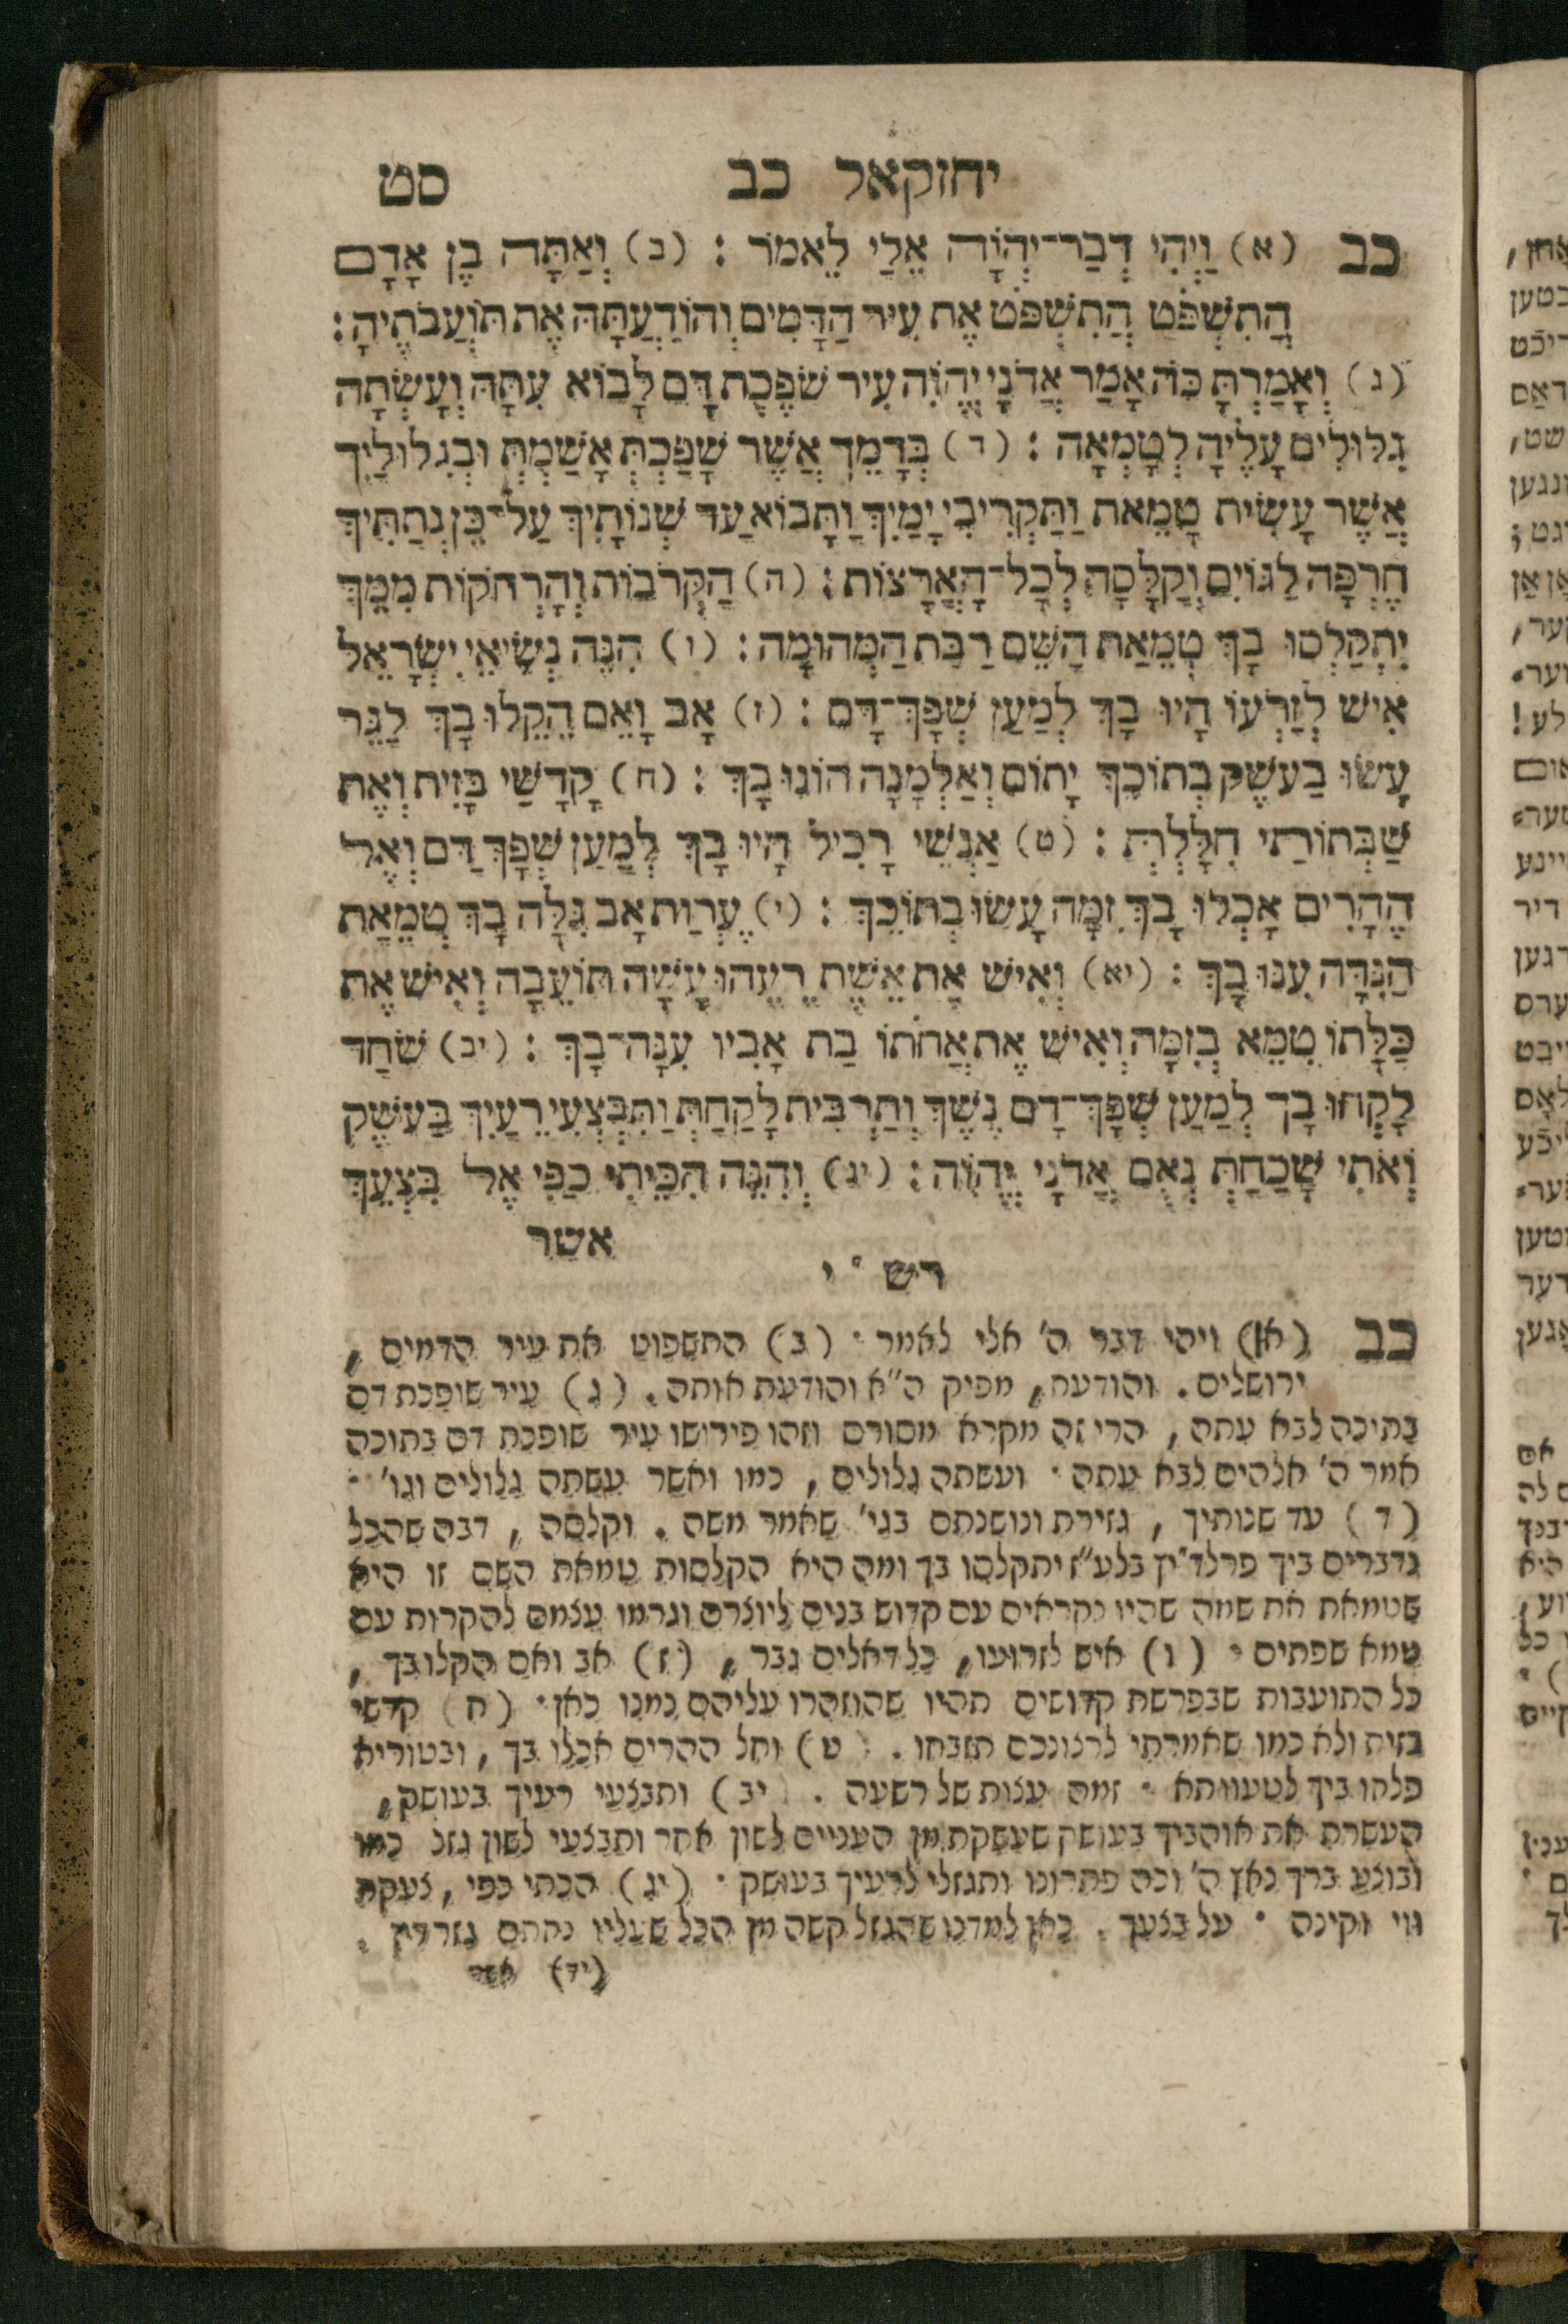 יחזקאל כב סט
כב (א) וַיְהִי דְבַר־יְהֹוָה אֵלַי לֵאמֹר : (ב) וְאַתָּה בֶן אָדָם
הֲתִשְׁפֹּט הֲתִשְׁפֹּט אֶת עִיר הַדָּמִים וְהוֹדַעְתָּהּ אֶת תּוֹעֲבֹתֶיהָ :
(ג) וְאָמַרְתָּ כֹּה אָמַר אֲדֹנָי יֱהֹוִה עִיר שֹׁפֶכֶת דָּם לָבוֹא עִתָּהּ וְעָשְׂתָה
גִלּוּלִים עָלֶיהָ לְטָמְאָה : (ד) בְּדָמֵךְ אֲשֶׁר שָׁפַכְתְּ אָשַׁמְתְּ וּבְגִלּוּלַיִךְ
אֲשֶׁר עָשִׂית טָמֵאת וַתַּקְרִיבִי יָמַיִךְ וַתָּבוֹא עַד שְׁנוֹתָיִךְ עַל־כֵּן נְתַתִּיךְ
חֶרְפָּה לַגּוֹיִם וְקַלָּסָה לְכָל־הָאֲרָצוֹת : (ה) הַקְּרֹבוֹת וְהָרְחֹקוֹת מִמֵּךְ
יִתְקַלְּסוּ בָךְ טְמֵאַת הַשֵּׁם רַבַּת הַמְּהוּמָה : (ו) הִנֵּה נְשִׂיאֵי יִשְׂרָאֵל
אִישׁ לִזְרֹעוֹ הָיוּ בָךְ לְמַעַן שְׁפָךְ־דָּם : (ז) אָב וָאֵם הֵקַלּוּ בָךְ לַגֵּר
עָשׂוּ בַעֹשֶׁק בְּתוֹכֵךְ יָתוֹם וְאַלְמָנָה הוֹנוּ בָךְ : (ח) קָדָשַׁי בָּזִית וְאֶת
שַׁבְּתוֹתַי חִלָּלְתְּ : (ט) אַנְשֵׁי רָכִיל הָיוּ בָךְ לְמַעַן שְׁפָךְ דָּם וְאֶל
הֶהָרִים אָכְלוּ בָךְ זִמָּה עָשׂוּ בְתוֹכֵךְ : (י) עֶרְוַת אָב גִּלָּה בָךְ טְמֵאַת
הַנִּדָּה עִנּוּ בָךְ : (יא) וְאִישׁ אֶת אֵשֶׁת רֵעֵהוּ עָשָׂה תּוֹעֵבָה וְאִישׁ אֶת
כַּלָּתוֹ טִמֵּא בְזִמָּה וְאִישׁ אֶת אֲחֹתוֹ בַת אָבִיו עִנָּה־בָךְ : (יב) שֹׁחַד
לָקְחוּ בָךְ לְמַעַן שְׁפָךְ־דָּם נֶשֶׁךְ וְתַרְבִּית לָקַחַתְּ וַתְּבַצְּעִי רֵעַיִךְ בַּעֹשֶׁק
וְאֹתִי שָׁכַחַתְּ נְאֻם אֲדֹנָי יֱהֹוִה : (יג) וְהִנֵּה הִכֵּיתִי כַפִּי אֶל בִּצְעֵךְ
אשר
רש״י
כב (א) ויהי דבר ה' אלי לאמר · (ב) התשפוט את עיר הדמים ,
ירושלים . והודעת , מפיק ה"א והודעת אותה . (ג) עיר שופכת דם
בתיכה לבא עתה , הרי זה מקרא מסורס וזהו פירושו עיר שופכת דם בתוכה
אמר ה' אלהים לבא עתה · ועשתה גלולים , כמו ואשר עשתה גלולים וגו' ·
(ד) עד שנותיך , גזירת ונושנתם בגי' שאמר משה . וקלסה , דבה שהכל
נדברים ביך פרלד"ין בלע"ז יתקלסו בך ומה היא הקלסות טמאת השם זו היא
שטמאת את שמה שהיו נקראים עם קדוש בנים ליוצרם וגרמו עצמם להקרות עם
טמא שפתים · (ו) איש לזרועו , כל דאלים גבר , (ז) אב ואם הקלו בך ,
כל התועבות שבפרשת קדושים תהיו שהוזהרו עליהם נמנו כאן · (ח) קדשי
בזית ולא כמו שאמרתי לרצונכם תזבחו . (ט) ואל ההרים אכלו בך , ובטוריא
פלחו ביך לטעוותא · זמה עצות של רשעה . (יב) ותבצעי רעיך בעושק ,
העשרת את אוהביך בעושק שעשקת מן העניים לשון אחר ותבצעי לשון גזל כמו
ובוצע ברך נאץ ה' וכה פתרונו ותגזלי לרעיך בעושק · (יג) הכתי כפי , צעקת
ווי וקינה · על בצעך . כאן למדנו שהגזל קשה מן הכל שעליו נחתם גזר דין .
(יד)